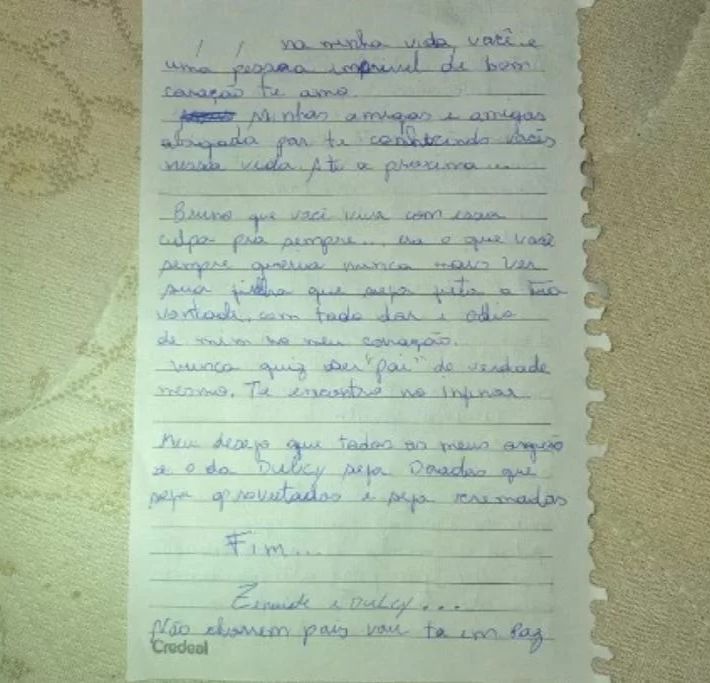 na minha vida, você e
uma pessoa de bom
coração te amo.
Minhas amigas e amigos
obrigada por te conhecindo vocês
nessa vida. Ate a proxima ...
Bruno que você viva com essa
culpa pra sempre... era o que você
sempre queria nunca mais ver
sua filha que seja feita a tua
vontade. com toda dor e odio
de mim no meu coração.
nunca quiz ser "pai" de verdade
mesmo. Te encontro no
Meu desejo que todos os meus
e o da Dulcy seja Doados que
seja aproveitados e seja cremados
Fim...
Zenaide e Dulcy...
Não chorem pois vou ta em Paz
Credeal